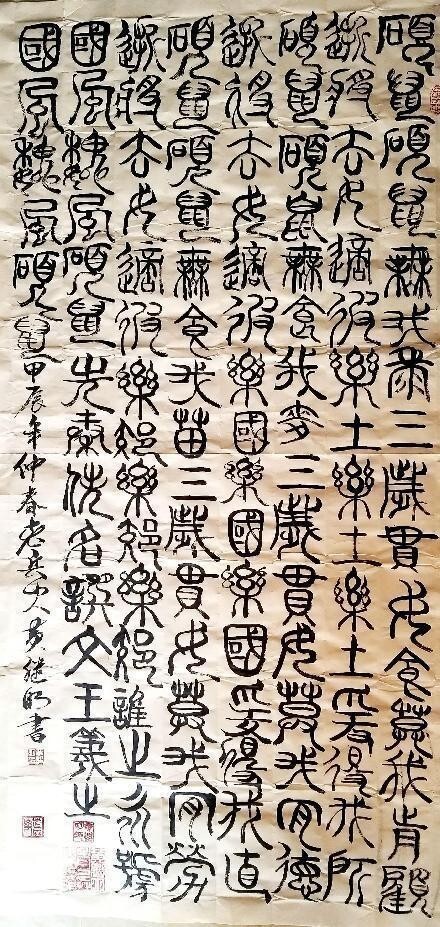 碩鼠碩鼠無我黍三歲貫女食莫我肯顧
逝將去女適彼樂土樂土樂土爰得我所
碩鼠碩鼠無食我麥三歲貫女莫我肯德
逝將去女適彼樂國樂國樂國爰得我直
碩鼠碩鼠無食我苗三歲貫女莫我肯勞
逝將去女適彼樂郊樂郊樂郊誰之永號
國風魏風碩鼠先秦佚名譔文王義之
國風魏風碩鼠甲辰年仲春老兵山人黄继明書